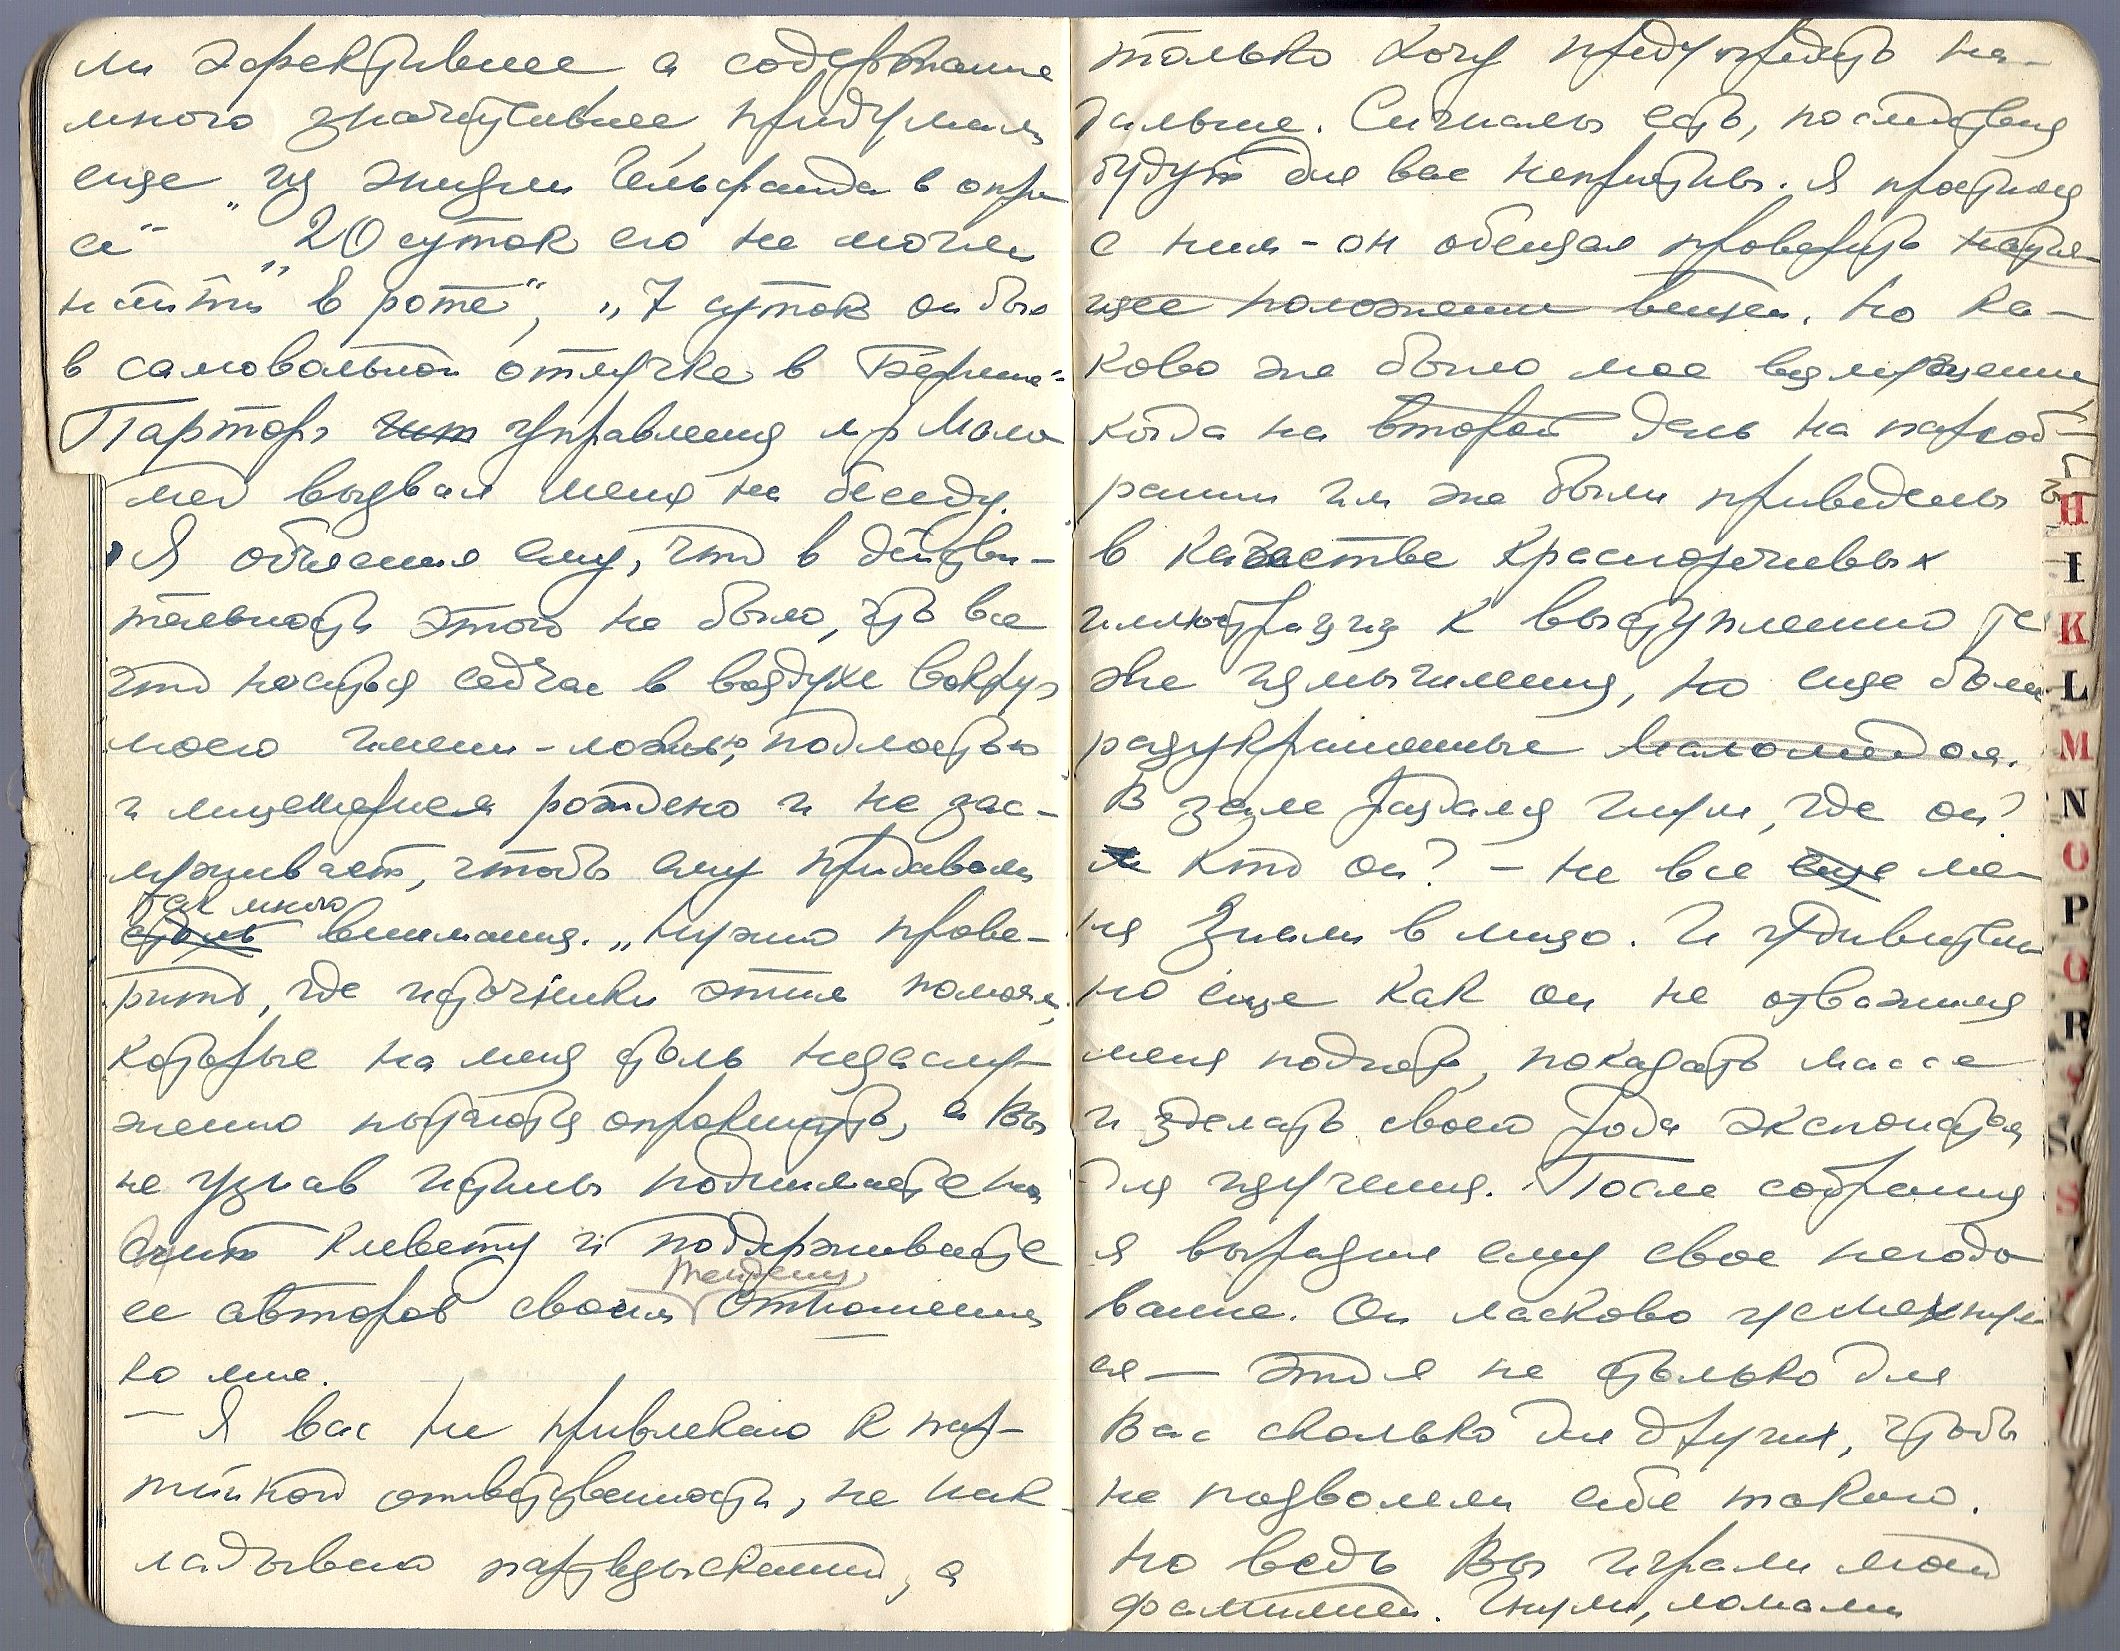 ли эфективнее а содержание
много значительнее, придумали
еще „из жизни Гельфанда в опи-
си“ „20 суток его не могли
найти в роте“, „7 суток он был
в самовольной отлучке в Берлине“
Парторг управления м-р Мало
мед вызвал меня на беседу.
Я объяснил ему, что в действи-
тельности этого не было, что все
что носится сейчас в воздухе вокруг
моего имени - ложью, подлостью
и лицемерием рождено и не зас-
луживает, чтобы ему придавали
так много
столь внимания. „Нужно прове-
рить, где источники этих помоев,
которые на меня столь незаслу-
женно пытаются опрокинуть, а Вы
не узнав истины поднимаете на
щит клевету и подхерживаете
ее авторов своим отношением
ко мне.
— Я вас не привлекаю к пар-
тийной ответственности, не нак-
ладываю партвзысканий, а
только хочу предупредить на-
дальше. Сигналы есть, последствия
будут для вас неприятны. Я простился
с ним - он обещал проверить настоя-
щее положение вещей. Но ка-
ково же было мое возмущение
когда на второй день на партсоб-
рании им же были приведены
в качестве красноречивых
иллюстраций к выступлению те
же измышления, но еще более
разукрашенные Маломедом.
В зале раздался шум, где он?
Кто он? - не все еще ме-
ня знали в лицо. И удивительно
но еще как он не отважился
меня поднять, показать массе
и зделать своего рода экспонатом
для изучения. После собрания
я выразил ему свое негодо
вание. Он ласково усмехнул
ся — это я не столько для
Вас сколько для других, чтобы
не позволяли себе такого.
Но ведь Вы играли моей
фамилией. Гнули, ломали
H
I
K
L
M
N
O
P
Q
R
S